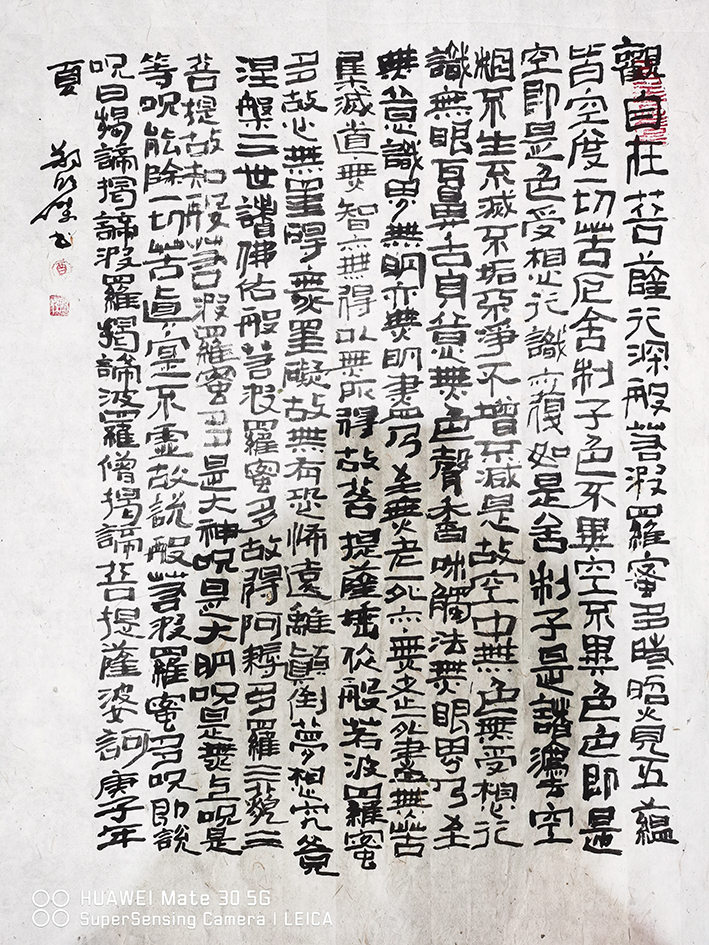 觀自在菩薩行深般若波羅蜜多時照見五蘊
皆空度一切苦厄舍利子色不異空不異色色即是
空即是色受想行識亦復如是舍利子是諸灋空
相不生不滅不垢不淨不增不減是故空中無色無受想行
識無眼耳鼻舌身意無色聲香味觸法無眼界乃至
無意識界無明亦無明盡乃至無老死亦無老死盡無苦
集滅道無智亦無得以無所得故菩提薩埵依般若波羅蜜
多故心無罣碍無罣礙故無有恐怖遠離顛倒夢想究竟
涅槃三世諸佛依般若波羅蜜多故得阿耨多羅三藐三
菩提故知般若波羅蜜多是大神呪是大明呪是無上呪是
等呪能除一切苦真實不虛故說般若波羅蜜多呪即說
呪曰揭諦揭諦波羅揭諦波羅僧揭諦菩提薩婆訶庚子年
夏
HUAWEI Mate 30 5G
SuperSensing Camera | LEICA